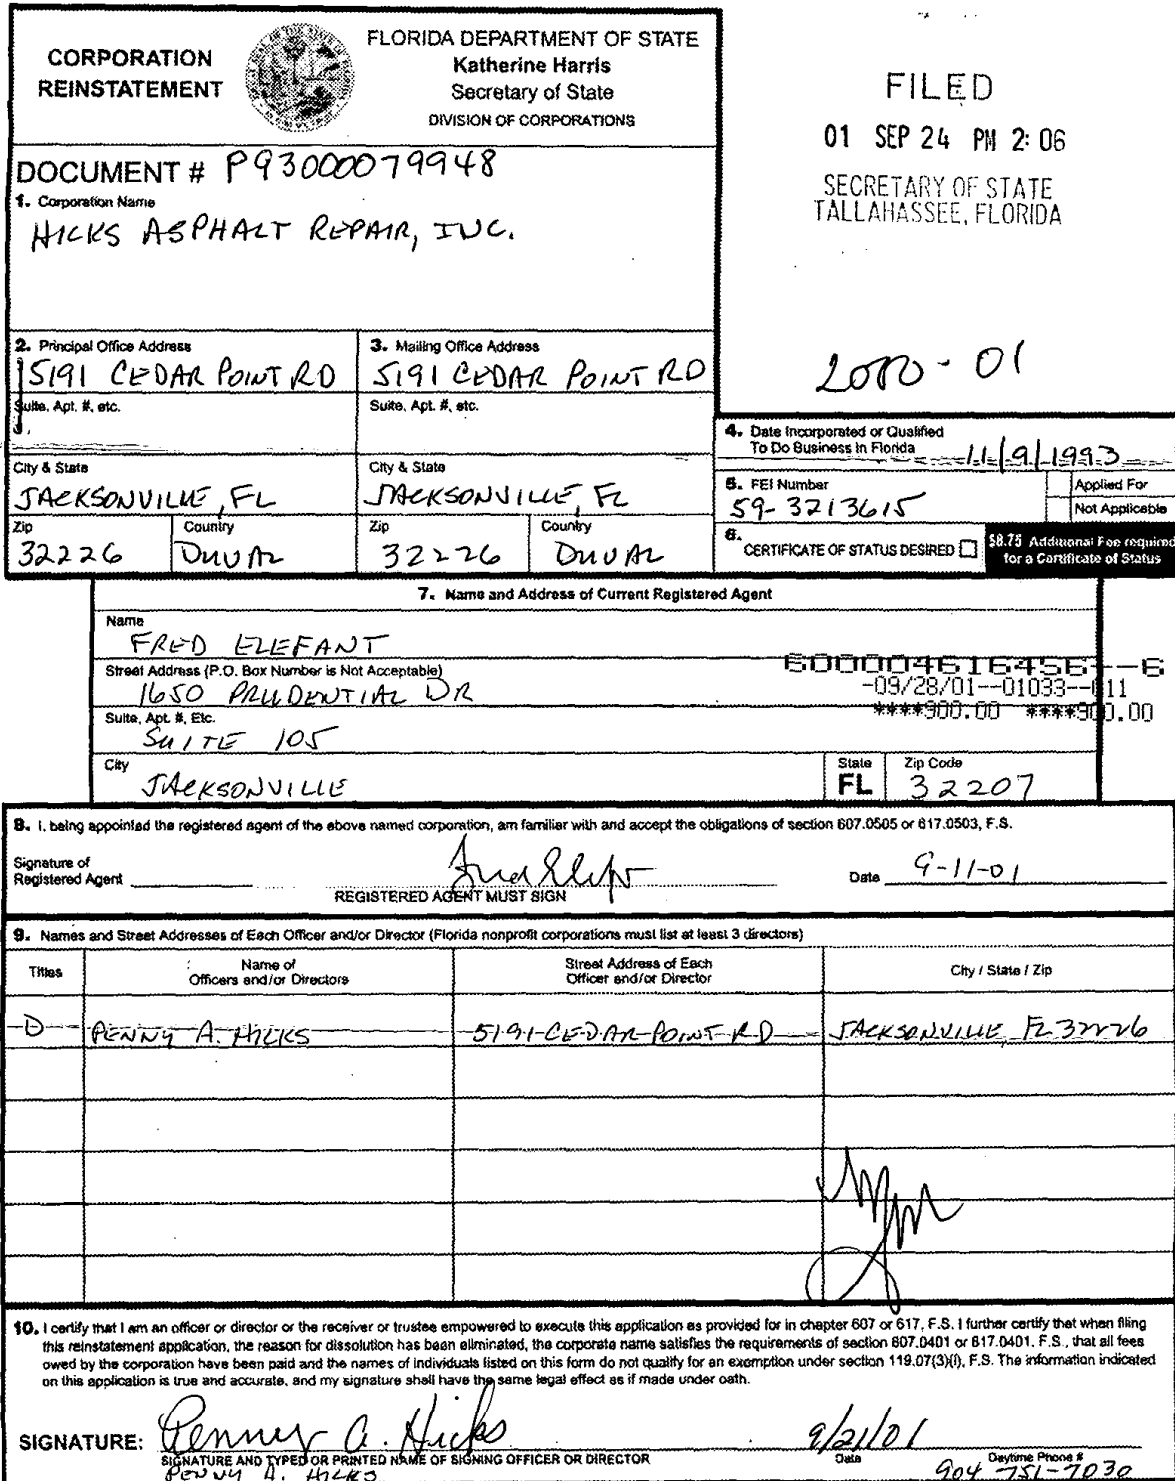 CORPORATION
REINSTATEMENT
FLORIDA DEPARTMENT OF STATE
Katherine Harris
Secretary of State
DIVISION OF CORPORATIONS
FILED
01 SEP 24 PM 2:06
SECRETARY OF STATE
TALLAHASSEE, FLORIDA
DOCUMENT # P93000079948
1. Corporation Name
HICKS ASPHALT REPAIR, INC.
2. Principal Office Address
5191 CEDAR POINT RD
3. Mailing Office Address
5191 CEDAR POINT RD
2000-01
Suite, Apt. #, etc.
Suite, Apt. #, etc.
4. Date Incorporated or Qualified
To Do Business in Florida
11/9/1993
City & State
JACKSONVILLE, FL
City & State
JACKSONVILLE, FL
5. FEI Number
59-3213615
Applied For
Not Applicable
Zip
32226
Country
DUVAL
Zip
32226
Country
DUVAL
6.
CERTIFICATE OF STATUS DESIRED
$8.75 Additional Fee required
for a Certificate of Status
7. Name and Address of Current Registered Agent
Name
FRED ELEFANT
Street Address (P.O. Box Number is Not Acceptable)
1650 PRUDENTIAL DR
-09/28/01--01033--011
****900.00 ****900.00
Suite, Apt. #, Etc.
SUITE 105
City
JACKSONVILLE
State
FL
Zip Code
32207
8. I, being appointed the registered agent of the above named corporation, am familiar with and accept the obligations of section 607.0505 or 617.0503, F.S.
Signature of
Registered Agent
REGISTERED AGENT MUST SIGN
Date 9-11-01
9. Names and Street Addresses of Each Officer and/or Director (Florida nonprofit corporations must list at least 3 directors)
Titles
Name of
Officers and/or Directors
Street Address of Each
Officer and/or Director
City / State / Zip
D PENNY A. HICKS 5191 CEDAR POINT RD JACKSONVILLE, FL 32226
10. I certify that I am an officer or director or the receiver or trustee empowered to execute this application as provided for in chapter 607 or 617, F.S. I further certify that when filing
this reinstatement application, the reason for dissolution has been eliminated, the corporate name satisfies the requirements of section 607.0401 or 617.0401, F.S., that all fees
owed by the corporation have been paid and the names of individuals listed on this form do not qualify for an exemption under section 119.07(3)(i), F.S. The information indicated
on this application is true and accurate, and my signature shall have the same legal effect as if made under oath.
SIGNATURE: Penny A. Hicks
9/21/01
SIGNATURE AND TYPED OR PRINTED NAME OF SIGNING OFFICER OR DIRECTOR
Date
Daytime Phone #
PENNY A. HICKS
904 751-7030